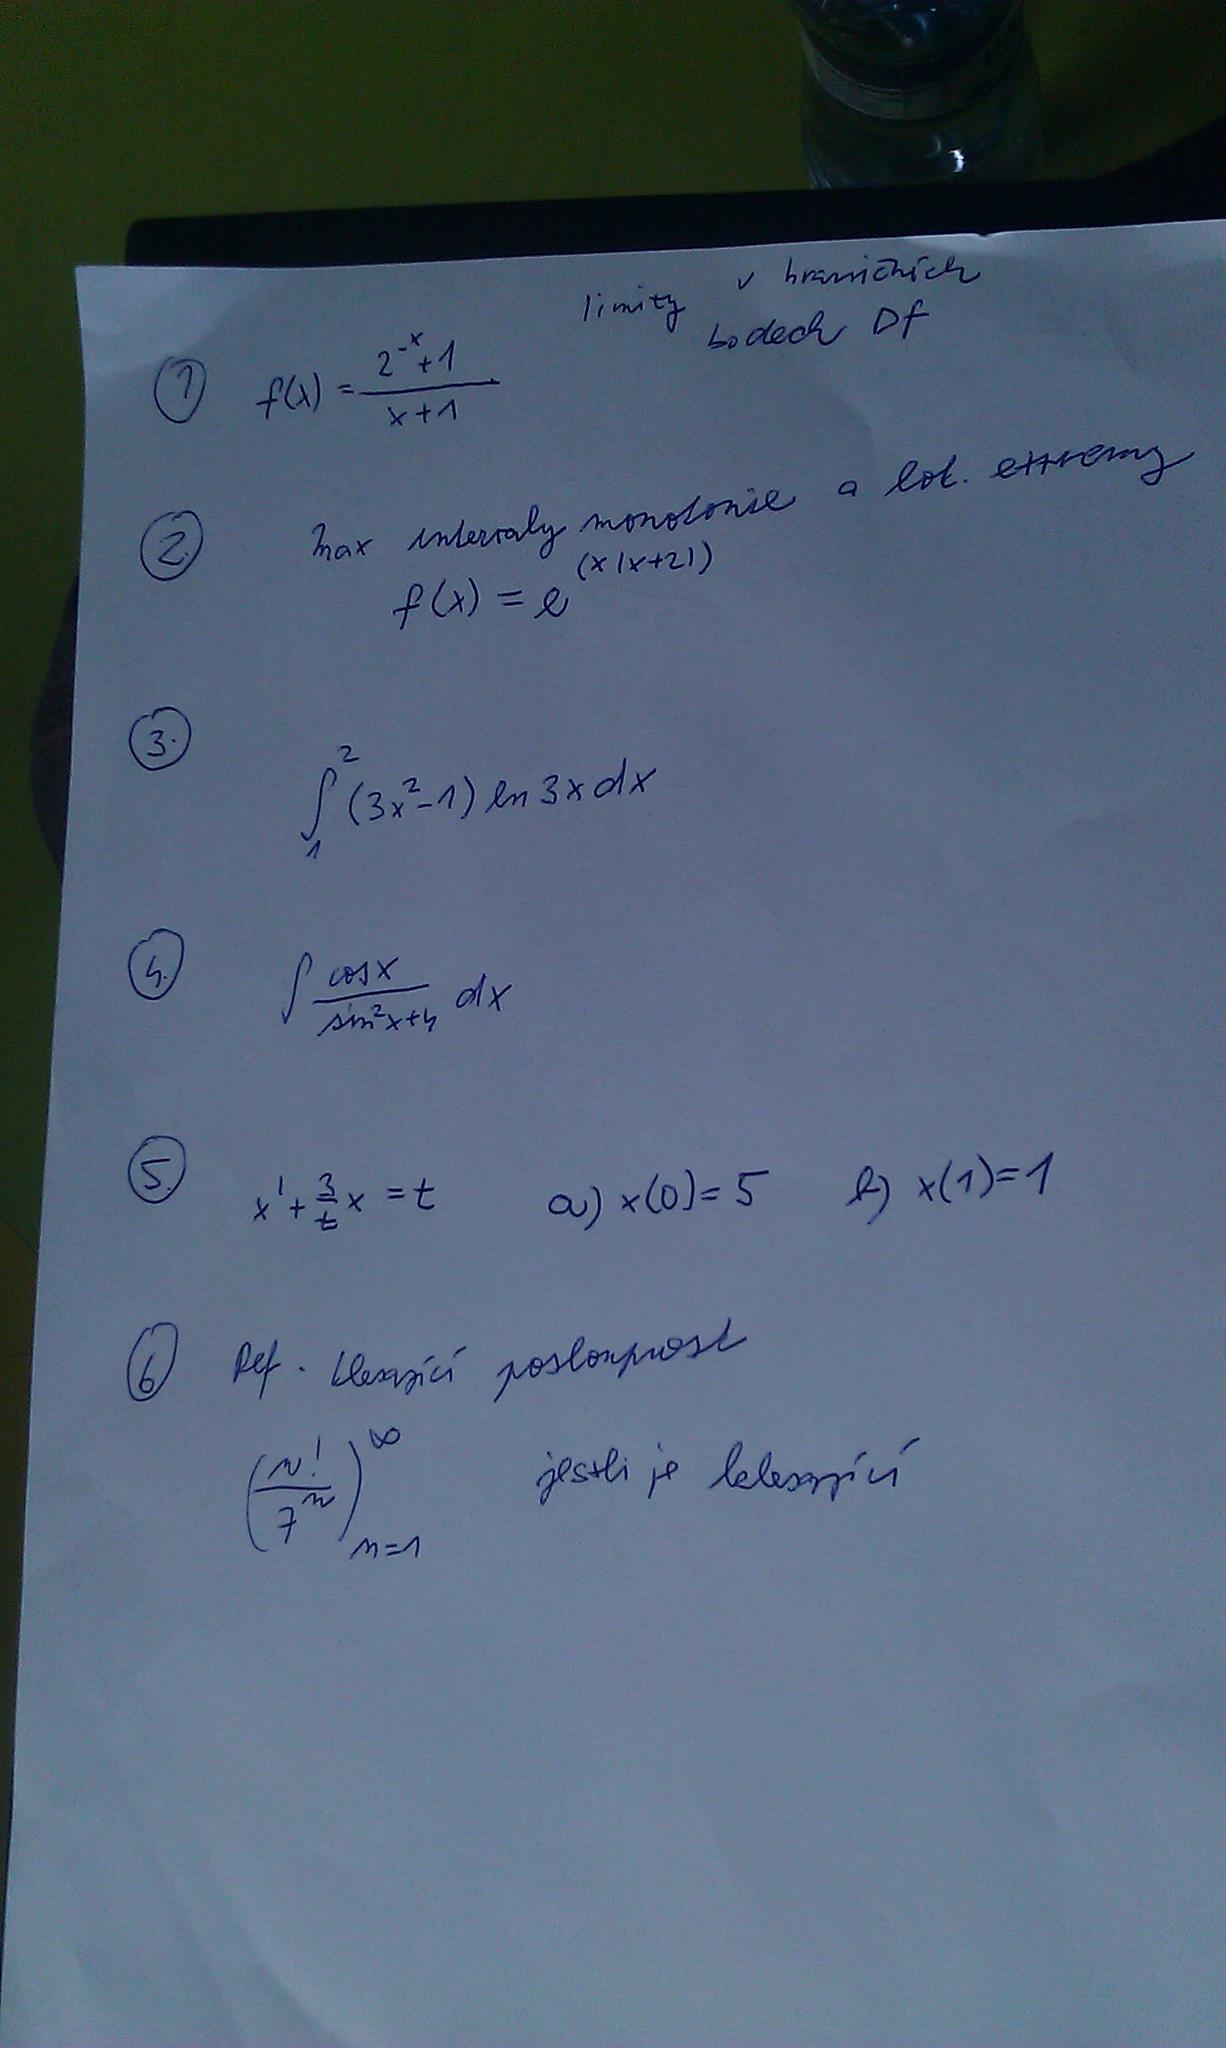 limity v hraničních
bodech Df
① f(x) = \frac{2^{-x}+1}{x+1}
②. max intervaly monotonie a lok. extremy
f(x) = e^{(x|x+2|)}
③. \int_1^2 (3x^2-1) ln 3x dx
④. \int \frac{cosx}{sin^2x+4} dx
⑤. x' + \frac{3}{t}x = t a) x(0) = 5 b) x(1) = 1
⑥ Def. klesající posloupnost
\left(\frac{n!}{7^n}\right)_{n=1}^{\infty} jestli je klesající